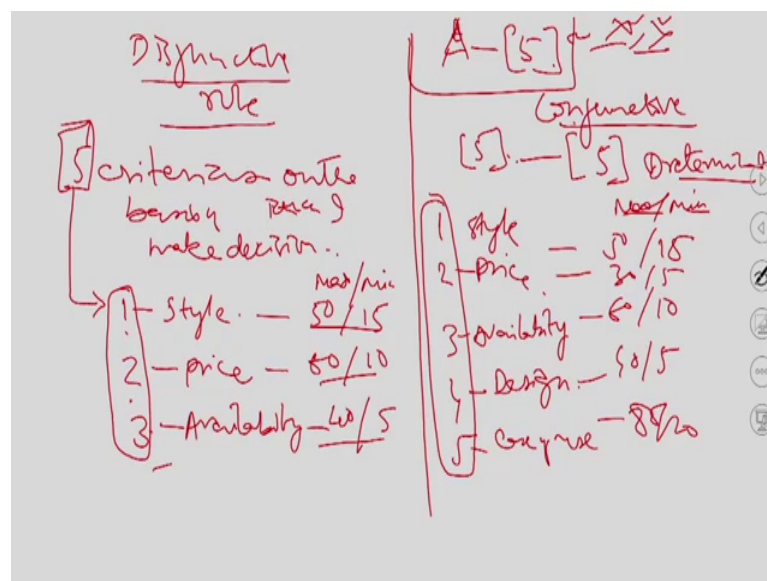 Disjunctive
rule
5 criterias on the
basis of which I
make decision..
Max/Min
1 - Style. - 50/15
2 - price - 60/10
3. - Availability - 40/5
A - [5] - X, Y
Conjunctive
[5]. - [5] Determined
Max/Min
1 Style - 50/15
2 - Price. - 30/15
3 - Availability - 60/10
4 - Design. - 50/5
5 - - 80/20